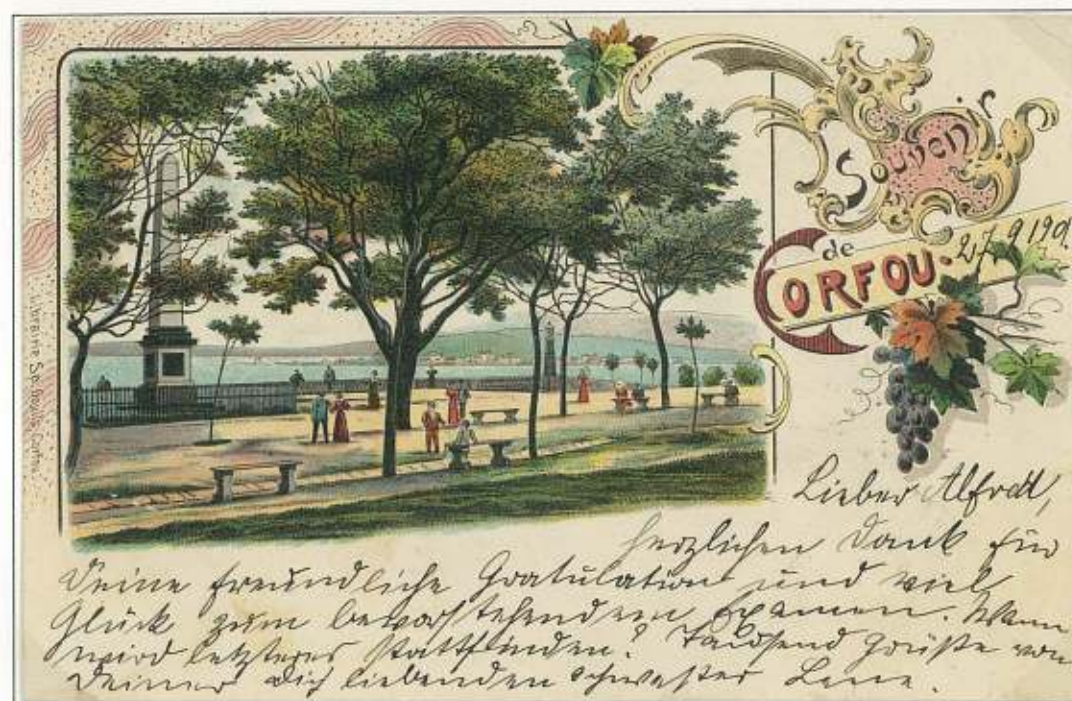 Souvenir
de
CORFOU.
27.9.190
Lieber Alfred,
herzlichen Dank für
Deine freundliche Gratulation und viel
Glück zum bevorstehendem Examen. Wann
wird letzteres stattfinden? Tausend Grüße von
Deiner Dich liebenden Schwester Lene.